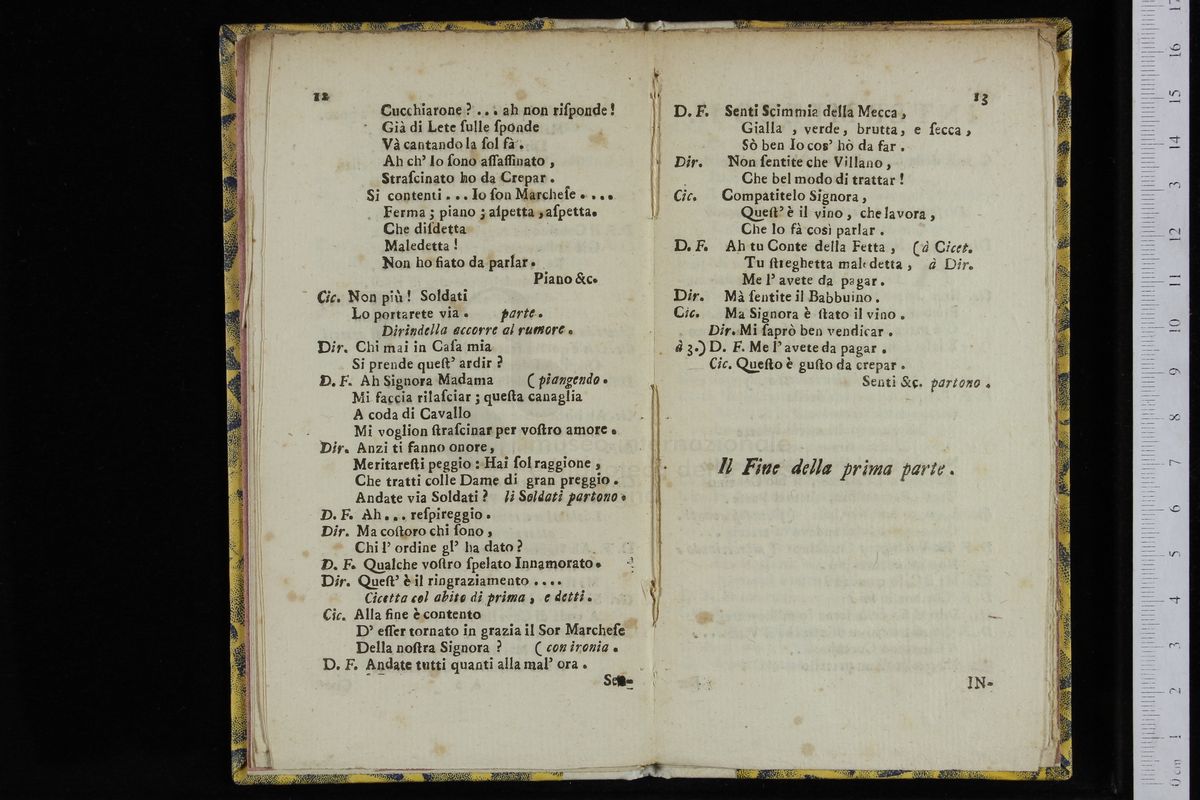 12
Cucchiarone ? . . . ah non riſponde !
Già di Lete ſulle ſponde
Và cantando la ſol fà .
Ah ch' Io ſono aſſaſſinato ,
Straſcinato ho da Crepar .
Si contenti . . . Io ſon Marcheſe . . . .
Ferma ; piano ; aſpetta , aſpetta.
Che diſdetta
Maledetta !
Non ho fiato da parlar .
Piano &c.
Cic. Non più ! Soldati
Lo portarete via . parte .
Dirindella accorre al rumore .
Dir. Chi mai in Caſa mia
Si prende queſt' ardir ?
D. F. Ah Signora Madama ( piangendo .
Mi faccia rilaſciar ; queſta canaglia
A coda di Cavallo
Mi voglion ſtraſcinar per voſtro amore .
Dir. Anzi ti fanno onore ,
Meritareſti peggio : Hai ſol raggione ,
Che tratti colle Dame di gran preggio .
Andate via Soldati ? li Soldati partono .
D. F. Ah . . . reſpireggio .
Dir. Ma coſtoro chi ſono ,
Chi l' ordine gl' ha dato ?
D. F. Qualche voſtro ſpelato Innamorato .
Dir. Queſt' è il ringraziamento . . . .
Cicetta col abito di prima , e detti .
Cic. Alla fine è contento
D' eſſer tornato in grazia il Sor Marcheſe
Della noſtra Signora ? ( con ironia .
D. F. Andate tutti quanti alla mal' ora .
13
D. F. Senti Scimmia della Mecca ,
Gialla , verde , brutta , e ſecca ,
Sò ben Io coſ' hò da far .
Dir. Non ſentite che Villano ,
Che bel modo di trattar !
Cic. Compatitelo Signora ,
Queſt' è il vino , che lavora ,
Che lo fà così parlar .
D. F. Ah tu Conte della Fetta , ( à Cicet.
Tu ſtreghetta maledetta , à Dir.
Me l' avete da pagar .
Dir. Mà ſentite il Babbuino .
Cic. Ma Signora è ſtato il vino .
Dir. Mi ſaprò ben vendicar .
à 3.) D. F. Me l' avete da pagar .
Cic. Queſto è guſto da crepar .
Senti &c. partono .
Il Fine della prima parte .
IN-